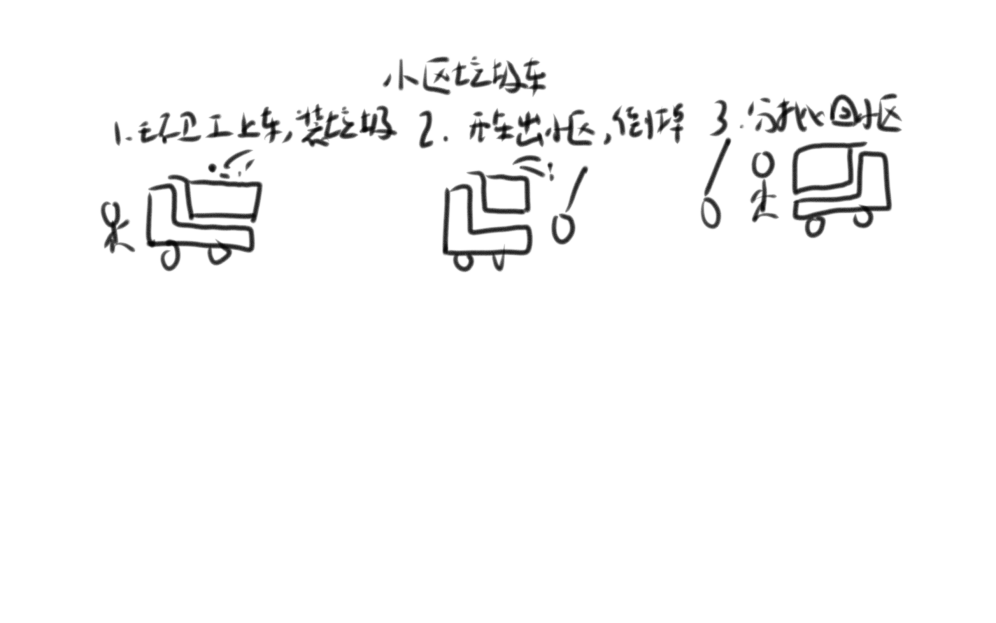 小区垃圾车
1.环卫工上车,装垃圾 2.开车出小区,倒掉 3.分批回小区